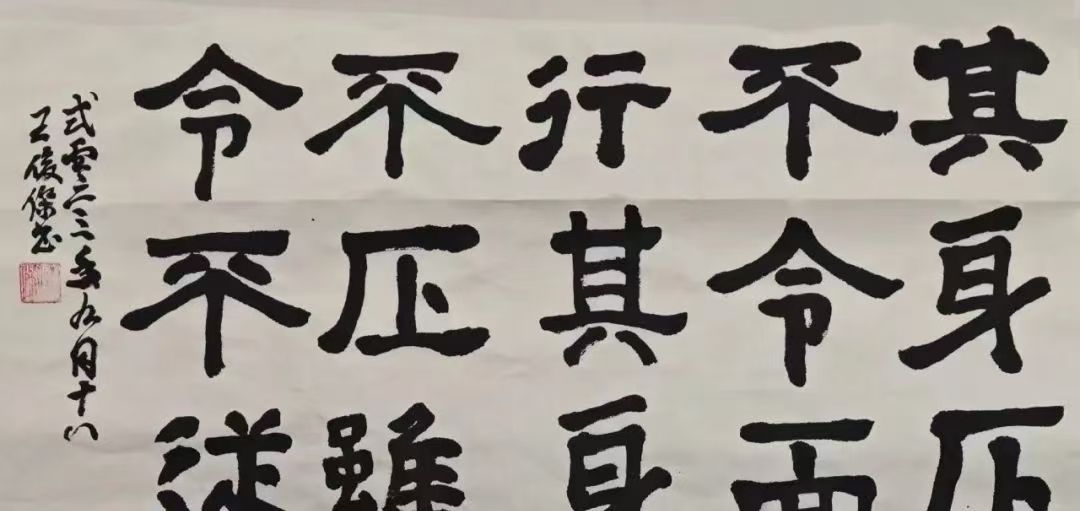 其身正
不令而
行其身
不正雖
令不從
弍零二三年九月十八
王俊傑书